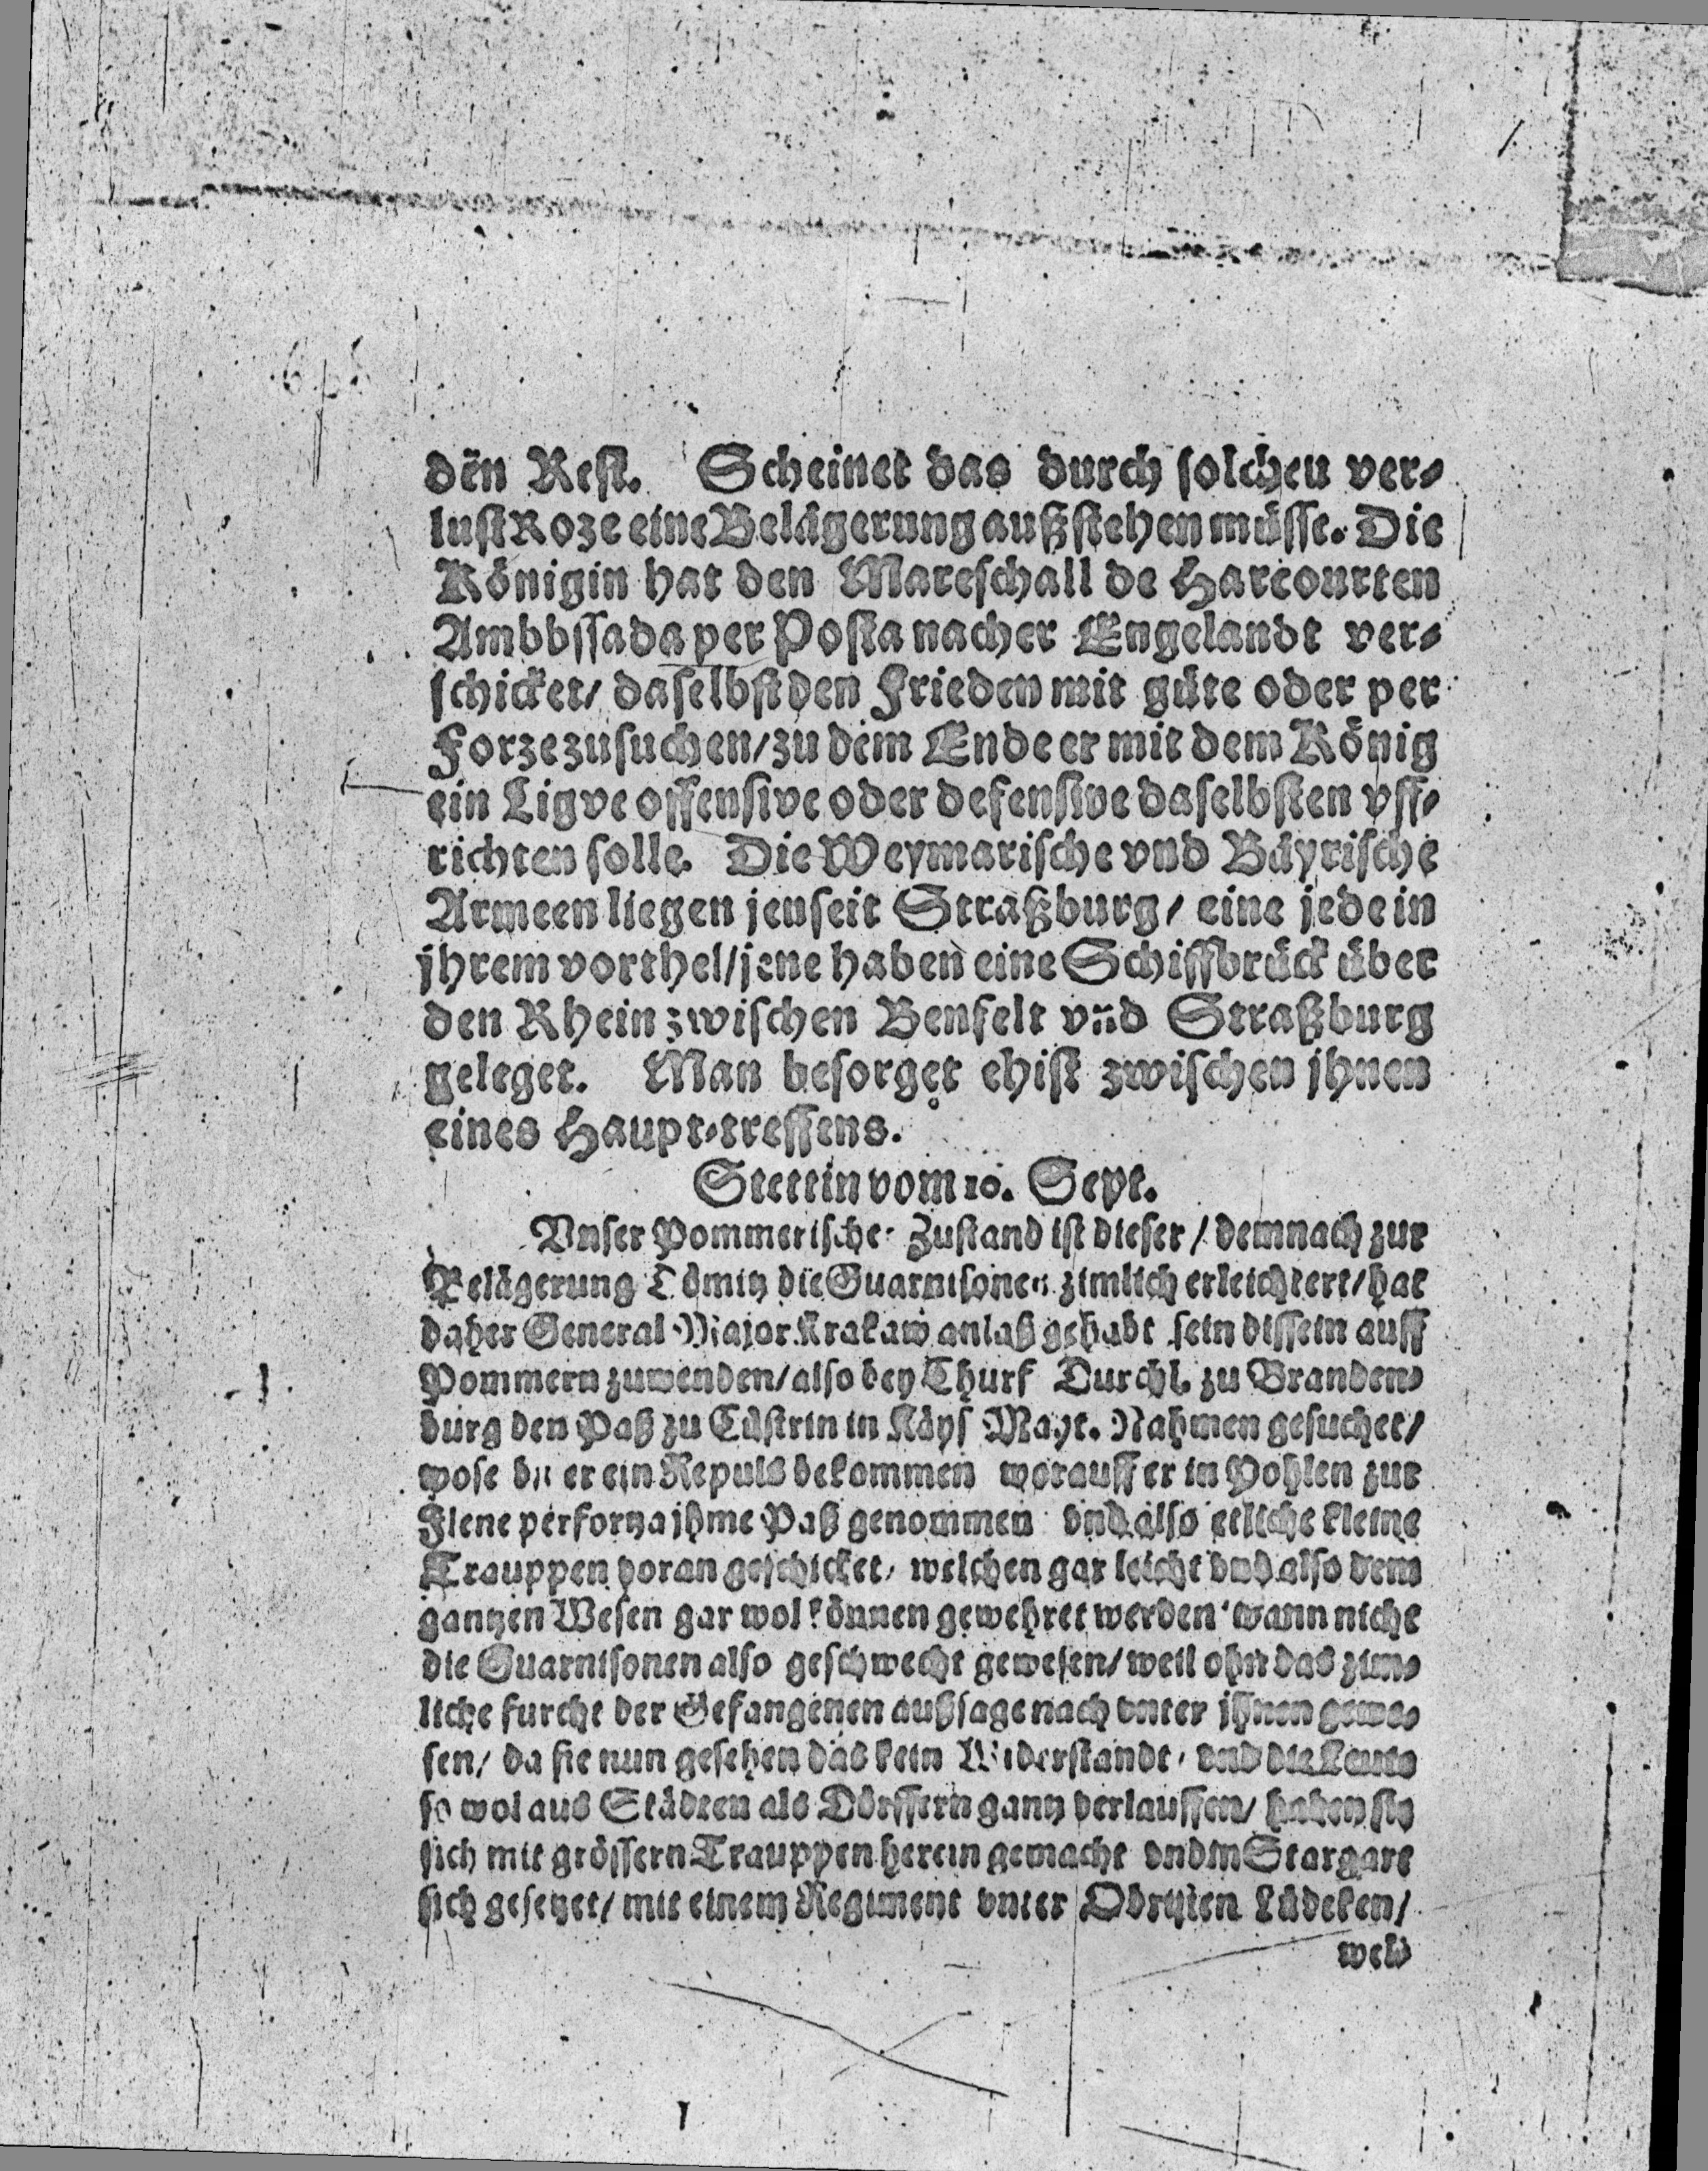 dẽn Rest. Scheinet das durch solcheu ver-
lust Roze eine Belägerung außstehen müsse. Die
Königin hat den Mareschall de Harcourten
Ambbssada per Posta nacher Engelandt ver-
schicket/ daselbst den Frieden mit güte oder per
Forze zusuchen/ zu dem Ende er mit dem König
ein Ligve offensive oder defensive daselbsten vff-
richten solle. Die Weymarische vnd Bäyrische
Armeen liegen jenseit Straßburg/ eine jede in
jhrem vorthel/ jene haben eine Schiffbrück über
den Rhein zwischen Benfelt vñd Straßburg
geleget. Man besorget ehist zwischen jhnen
eines Haupt-treffens.
Stettin vom 10. Sept.
Vnser Pommerische Zustand ist dieser/ demnach zur
Belägerung Dömitz die Guarnisonen zimlich erleichtert/ hat
daher General Major Krakaw anlaß gehabt sein dissein auff
Pommern zuwenden/ also bey Churf Durchl. zu Branden-
burg den Paß zu Cüstrin in Käys Mayt. Nahmen gesuchet/
wose bst er ein Repuls bekommen worauff er in Pohlen zur
Filene perforza jhme Paß genommen vnd also etliche kleine
Trauppen voran geschicket/ welchen gar leicht vnd also dem
gantzen Wesen gar wol können gewehret werden wann nicht
die Guarnisonen also geschwecht gewesen/ weil ohn das zim-
liche furcht der Gefangenen außsage nach vnter jhnen gewe-
sen/ da sie nun gesehen das kein Widerstandt/ vnd die Leute
so wol aus Städten als Dörffern gantz verlauffen/ haben sie
sich mit grössern Trauppen herein gemacht vnd in Stargart
sich gesetzet/ mit einem Regiment vnter Obristen Lüdeken/
welch